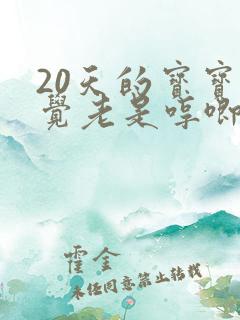 20天的宝宝
觉老是哼唧
霍金
未经同意禁止转载